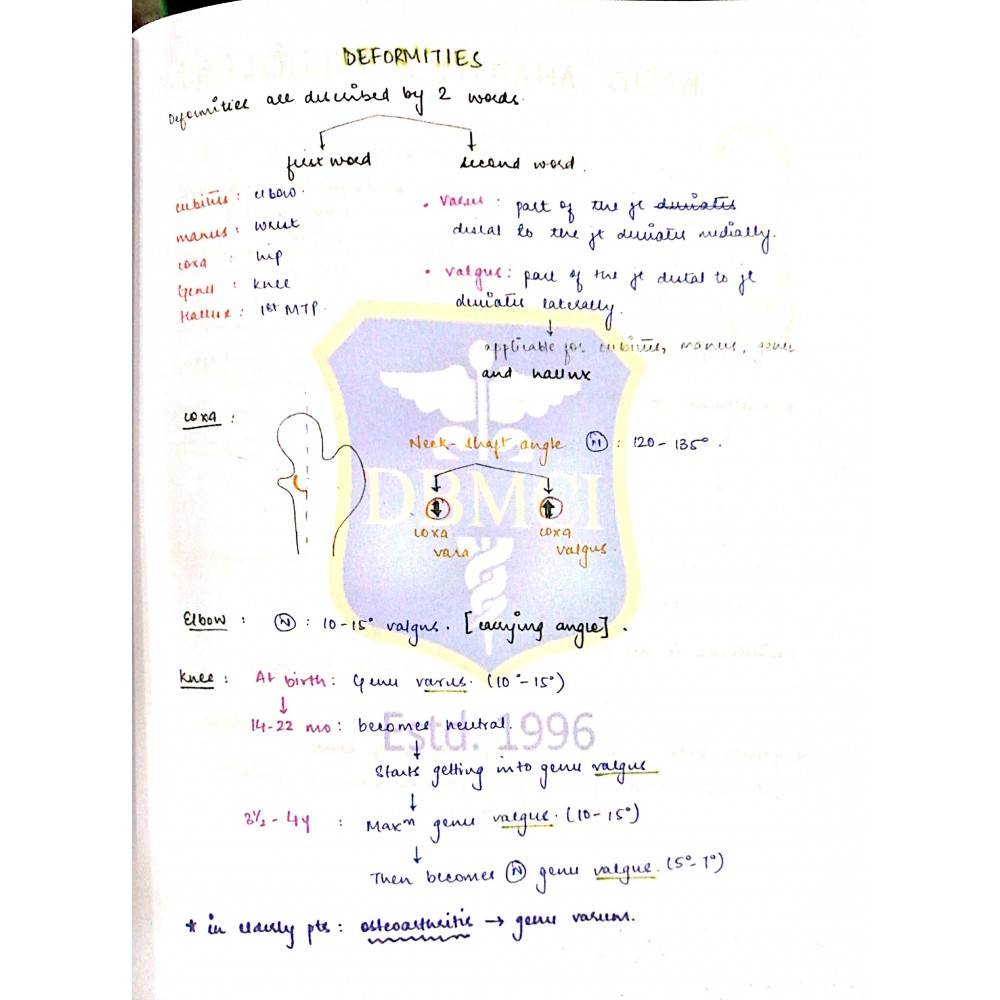 DEFORMITIES
Deformities are described by 2 words.
first word
second word.
cubitus : elbow.
manus : wrist
coxa : hip
Genu : knee
Hallux : 1st MTP.
• Varus : part of the jt deviates
distal to the jt deviates medially.
• valgus : part of the jt distal to jt
deviates laterally.
applicable for cubitus, manus, genu
and hallux
coxa :
Neck-shaft angle (N) : 120-135° .
DBMCI
⬇ ⬆
coxa vara
coxa valgus.
Elbow : (N) : 10-15° valgus. [carrying angle] .
Knee : At birth : Genu varus. (10°-15°)
14-22 mo : becomes neutral.
Estd. 1996
Starts getting into genu valgus
3½ - 4y : Maxm genu valgus. (10-15°)
Then becomes (N) genu valgus. (5°-7°)
* in elderly pts : osteoarthritis → genu varum.